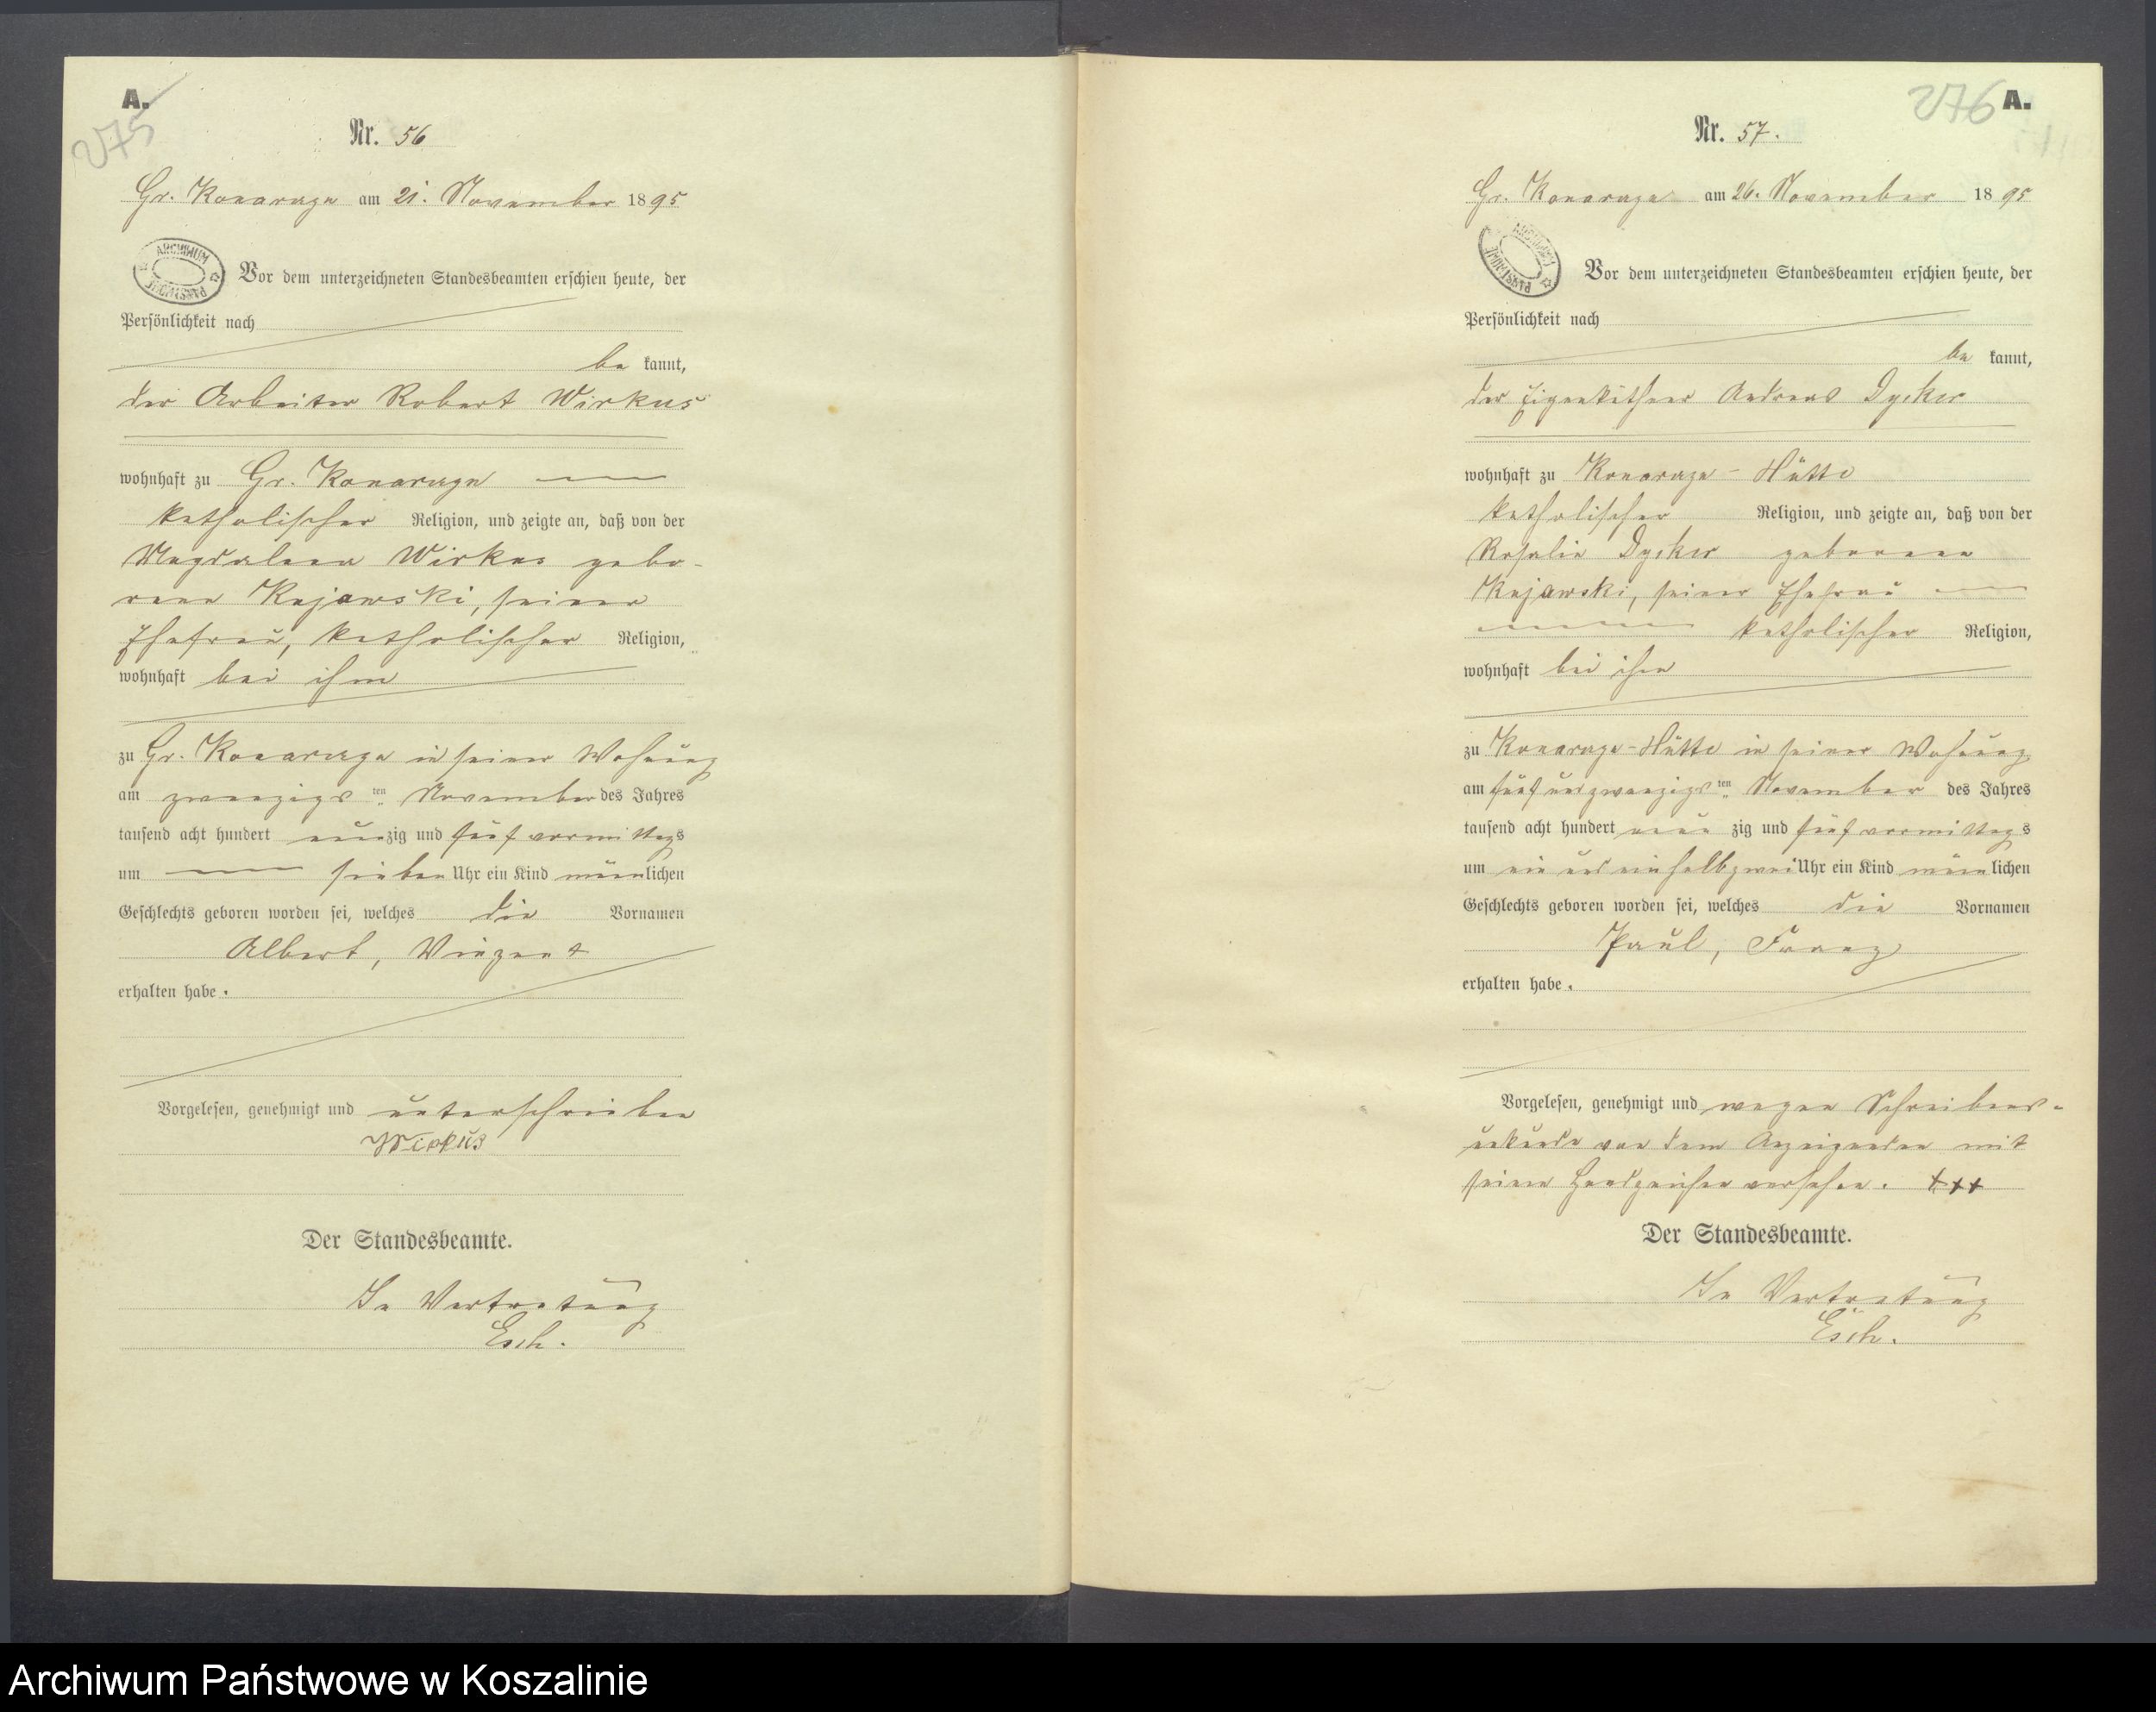 A.
275
Nr. 56
Gr. Konarzyn am 21. November 1895
ARCHIWUM PAŃSTWOWE
Vor dem unterzeichneten Standesbeamten erschien heute, der
Persönlichkeit nach
be kannt,
der Arbeiter Robert Wirkus
wohnhaft zu Gr. Konarzyn
katholischer Religion, und zeigte an, daß von der
Magdalena Wirkus gebo-
rene Kujawski, seiner
Ehefrau, katholischer Religion,
wohnhaft bei ihm
zu Gr. Konarzyn in seiner Wohnung
am zwanzigs ten November des Jahres
tausend acht hundert neunzig und fünf vormittags
um sieben Uhr ein Kind männlichen
Geschlechts geboren worden sei, welches die Vornamen
Albert, Vinzent
erhalten habe.
Vorgelesen, genehmigt und unterschrieben
Wirkus
Der Standesbeamte.
In Vertretung
Esch.
276 A.
Nr. 57.
Gr. Konarzyn am 26. November 1895
ARCHIWUM PAŃSTWOWE
Vor dem unterzeichneten Standesbeamten erschien heute, der
Persönlichkeit nach
be kannt,
der Eigenkäthner Andreas Dycker
wohnhaft zu Konarzyn-Hütte
katholischer Religion, und zeigte an, daß von der
Rosalie Dycker geborenen
Kujawski, seiner Ehefrau
katholischer Religion,
wohnhaft bei ihm
zu Konarzyn-Hütte in seiner Wohnung
am fünfundzwanzigs ten November des Jahres
tausend acht hundert neun zig und fünf vormittags
um ein und einhalb zwei Uhr ein Kind männlichen
Geschlechts geboren worden sei, welches die Vornamen
Paul, Franz
erhalten habe.
Vorgelesen, genehmigt und wegen Schreibens-
unkunde von dem Anzeigenden mit
seinem Handzeichen versehen. +++
Der Standesbeamte.
In Vertretung
Esch.
Archiwum Państwowe w Koszalinie